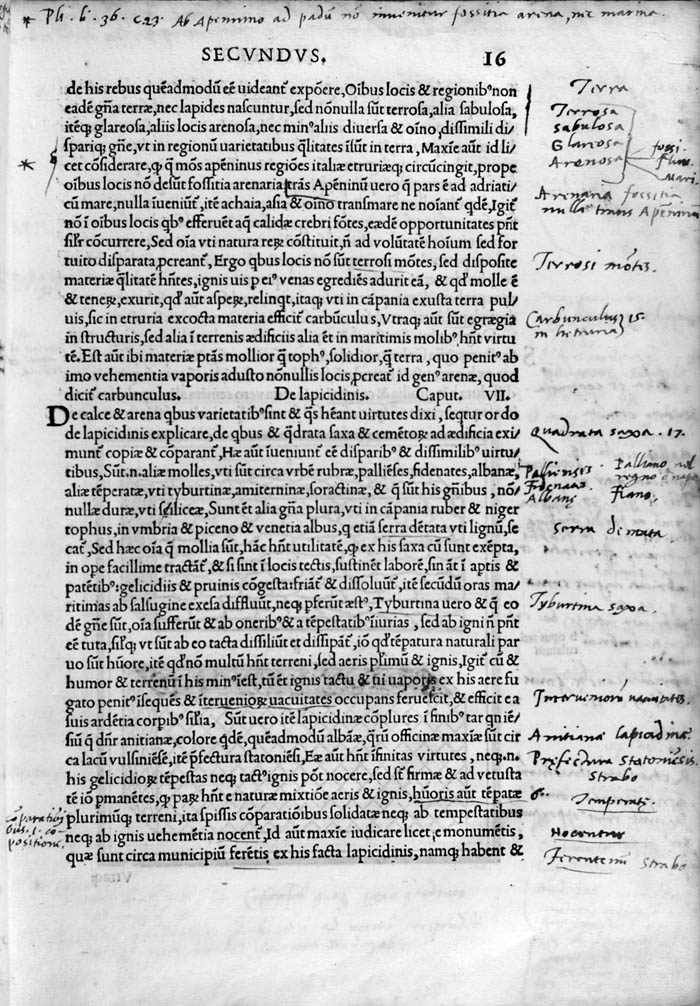 * Pli. li. 36. c. 23. Ab Apennino ad padū nō invenitur fossitia arena, nec marina.
SECVNDVS. 16
de his rebus quēadmodū eē uideant᷑ expōere, Oībus locis & regionibꝰ non
eadē gn̄a terræ, nec lapides nascuntur, sed nōnulla sūt terrosa, alia sabulosa,
itēq; glareosa, aliis locis arenosa, nec minꝰ aliis diuersa & oīno, dissimili di/
spariq; gn̄e, vt in regionū uarietatibus q̄litates īsūt in terra, Maxīe aūt id li/
cet cōsiderare, ꝙ q̄ mōs apēninus regiōes italiæ etruriæq; circūcingit, prope
oībus locis nō desūt fossitia arenaria, trās Apēninū uero q̄ pars ē ad adriati/
cū mare, nulla īueniūt᷑, itē achaia, asia & oīno transmare ne noīant᷑ qdē, Igit᷑
nō ī oībus locis qbꝰ efferuēt aq̄ calidæ crebri fōtes, eædē opportunitates pn̄t
silr̄ cōcurrere, Sed oīa vti natura reꝝ cōstituit, n̄ ad volūtatē hoīum sed for
tuito disparata ꝓcreant᷑, Ergo qbus locis nō sūt terrosi mōtes, sed disposite
materiæ q̄litatē hn̄tes, ignis uis ꝑ eiꝰ venas egrediēs adurit eā, & qd᷑ molle ē
& teneꝝ, exurit, qd᷑ aūt aspeꝝ, relinqt, itaq; vti in cāpania exusta terra pul/
uis, sic in etruria excocta materia efficit᷑ carbūculus, Vtraq; aūt sūt egrægia
in structuris, sed alia ī terrenis ædificiis alia ēt in maritimis molibꝰ hn̄t virtu
tē. Est aūt ibi materiæ ptās mollior q̄ tophꝰ, solidior, q̄ terra, quo penitꝰ ab
imo vehementia vaporis adusto nōnullis locis, ꝓcreat᷑ id genꝰ arenæ, quod
dicit᷑ carbunculus. De lapicidinis. Caput. VII.
De calce & arena qbus varietatibꝰ sint & q̄s hēant uirtutes dixi, seqtur ordo
de lapicidinis explicare, de qbus & q̄drata saxa & cemētoꝝ ad ædificia exi/
munt᷑ copiæ & cōparant᷑, Hæ aūt īueniunt᷑ eē disparibꝰ & dissimilibꝰ uirtu/
tibus, Sūt.n. aliæ molles, vti sūt circa vrbē rubræ, palliēses, fidenates, albanæ,
aliæ tēperatæ, vti tyburtinæ, amiterninæ, soractinæ, & q̄ sūt his gn̄ibus, nō/
nullæ duræ, vti sciliceæ, Sunt ēt alia gn̄a plura, vti in cāpania ruber & niger
tophus, in vmbria & piceno & venetia albus, q etiā serra dētata vti lignū, se
cat᷑, Sed hæc oīa q̄ mollia sūt, hāc hn̄t utilitatē, ꝙ ex his saxa cū sunt exēpta,
in ope facillime tractāt᷑, & si sint ī locis tectis, sustinēt laborē, sin āt ī aptis &
patētibꝰ: gelicidiis & pruinis cōgesta: friāt᷑ & dissoluūt᷑, itē secūdū oras ma/
ritimas ab salsugine exesa diffluūt, neq; ꝑferūt æstꝰ, Tyburtina uero & q̄ eo
dē gn̄e sūt, oīa sufferūt & ab oneribꝰ & a tēpestatibꝰ īiurias, sed ab igni n̄ pn̄t
eē tuta, silꝗ; vt sūt ab eo tacta dissiliūt et dissipāt᷑, iō qd᷑ tēpatura naturali par
uo sūt hūore, itē qd᷑ nō multū hn̄t terreni, sed aeris plimū & ignis, Igit᷑ cū &
humor & terrenū ī his minꝰ īest, tū ēt ignis tactu & ui uaporis ex his aere fu
gato penitꝰ īsequēs & īterueniorꝝ uacuitates occupans feruescit, & efficit ea
suis ardētia corpibꝰ silīa, Sūt uero itē lapicidinæ cōplures ī finibꝰ tarqniē/
siū q̄ dn̄r anitianæ, colore qdē, quēadmodū albāæ, q̄rū officinæ maxīæ sūt cir
ca lacū vulsiniēsē, itē ꝑfectura statoniēsi, Eæ aūt hn̄t īfinitas virtutes, neq;.n.
his gelicidioꝝ tēpestas neq; tactꝰ ignis pōt nocere, sed st̄ firmæ & ad vetusta
tē iō ꝑmanētes, ꝙ paꝝ hn̄t e naturæ mixtiōe aeris & ignis, hūoris aūt tēpatæ
plurimūq; terreni, ita spissis cōparatiōibus solidatæ neq; ab tempestatibus
neq; ab ignis uehemētia nocent᷑, Id aūt maxīe iudicare licet, e monumētis,
quæ sunt circa municipiū ferētis ex his facta lapicidinis, namq; habent &
Terra
Terrosa
Sabulosa
Glareosa
Arenosa
fossi.
fluui.
Mari.
Arenaria fossitia
nulla trans Apēninū
Terrosi mōtes.
Carbunculus 15.
in hetruria
Quadrata saxa . 17.
Pallienses. Palliano nel
regno d' napo
Fidenates Fiano
Albanę
serra dentata
Tyburtina saxa.
Interueniorū vacuitates.
Anitianæ lapicidinæ
Præfectura Statoniēsis.
Strabo
Temperatę.
cōparatiōi
bus. i. cō
positione
Nocentur
Ferentemi Strabo